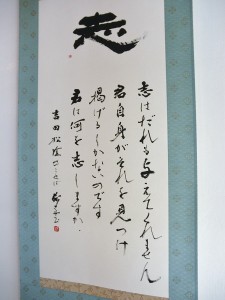 志
志はだれも与えてくれません
君自身がそれを見つけ
掲げるしかないのです
君は何を志しますか
吉田松陰